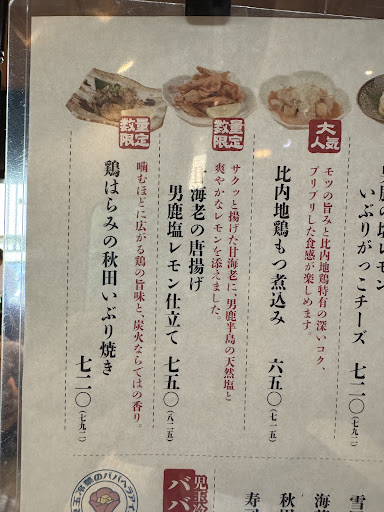 いぶりがっこチーズ 七二〇(七九二)
大人気
比内地鶏もつ煮込み 六五〇(七一五)
モツの旨みと比内地鶏特有の深いコク、
プリプリした食感が楽しめます。
数量限定
海老の唐揚げ
男鹿塩レモン仕立て 七五〇(八二五)
サクッと揚げた甘海老に、男鹿半島の天然塩と
爽やかなレモンを添えました。
数量限定
鶏はらみの秋田いぶり焼き 七二〇(七九二)
噛むほどに広がる鶏の旨味と、炭火ならではの香り。
児玉冷
ババ
秋田
寿